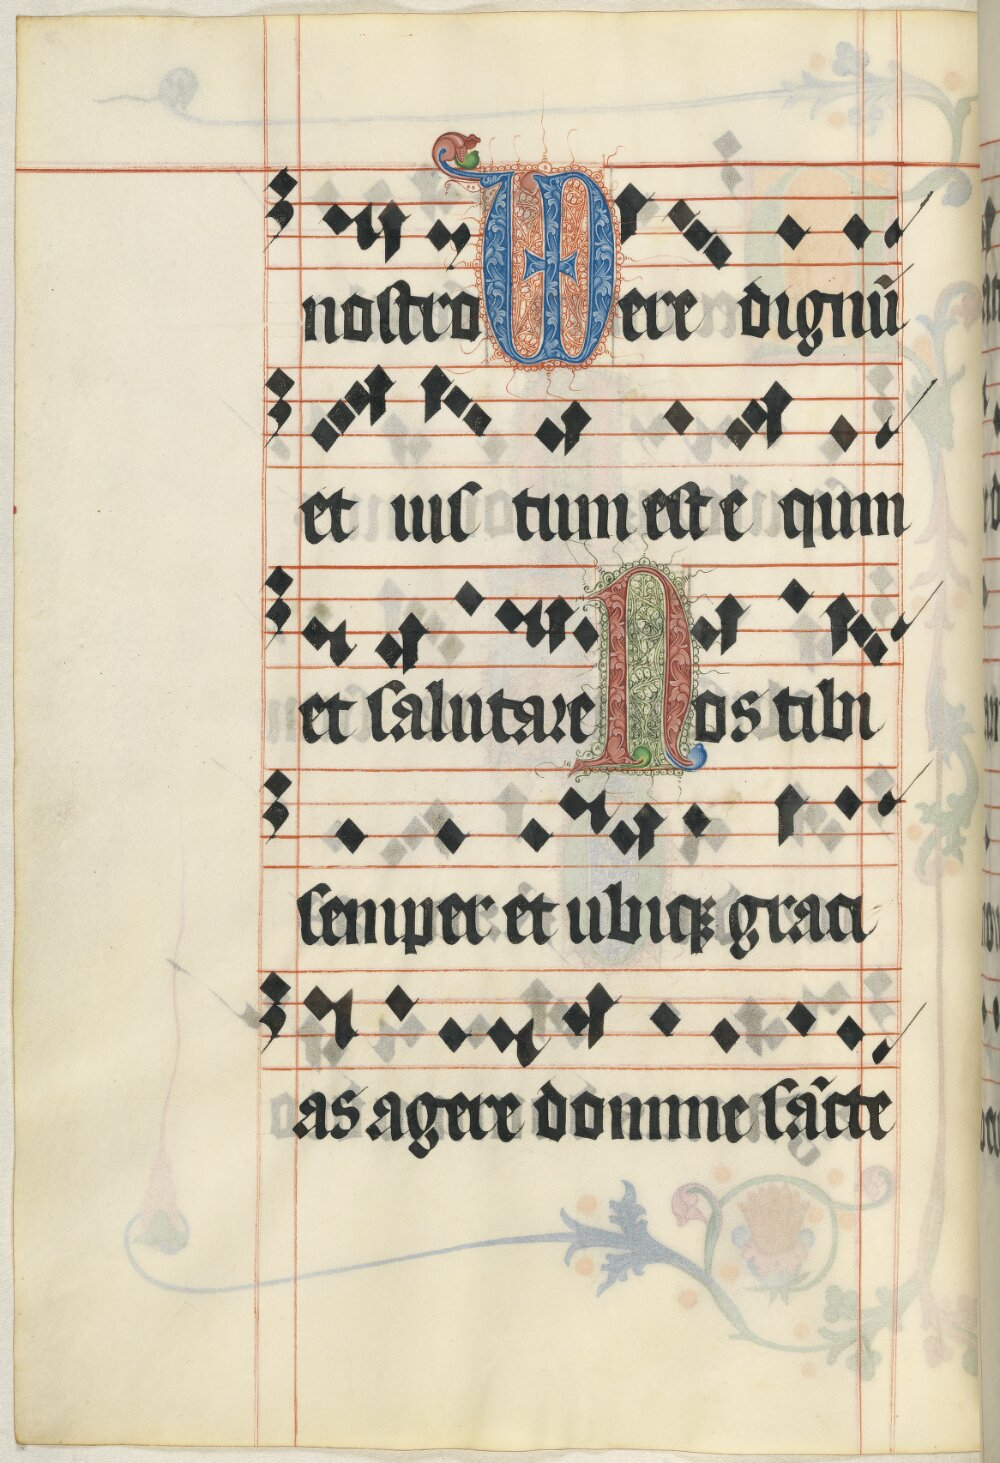 nostro Vere dignū
et ius tum est e quum
et salutare Nos tibi
semper et ubiqꝫ graci
as agere domine sācte